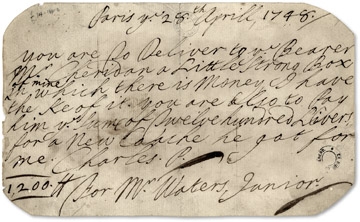 Paris yͤ. 28ᵗʰ Aprill 1748.
you are To Deliver to yͤ Bearer
Mʳ. Sheridan a Little Strong Box
of mine in which there is Money I have
the Ke of it. you are also to Pay
him yͤ Sume of Twelve hundred Livers
for a New Coache he got for
me. Charles. P.
1200.₶ For Mʳ. Waters, Junior.